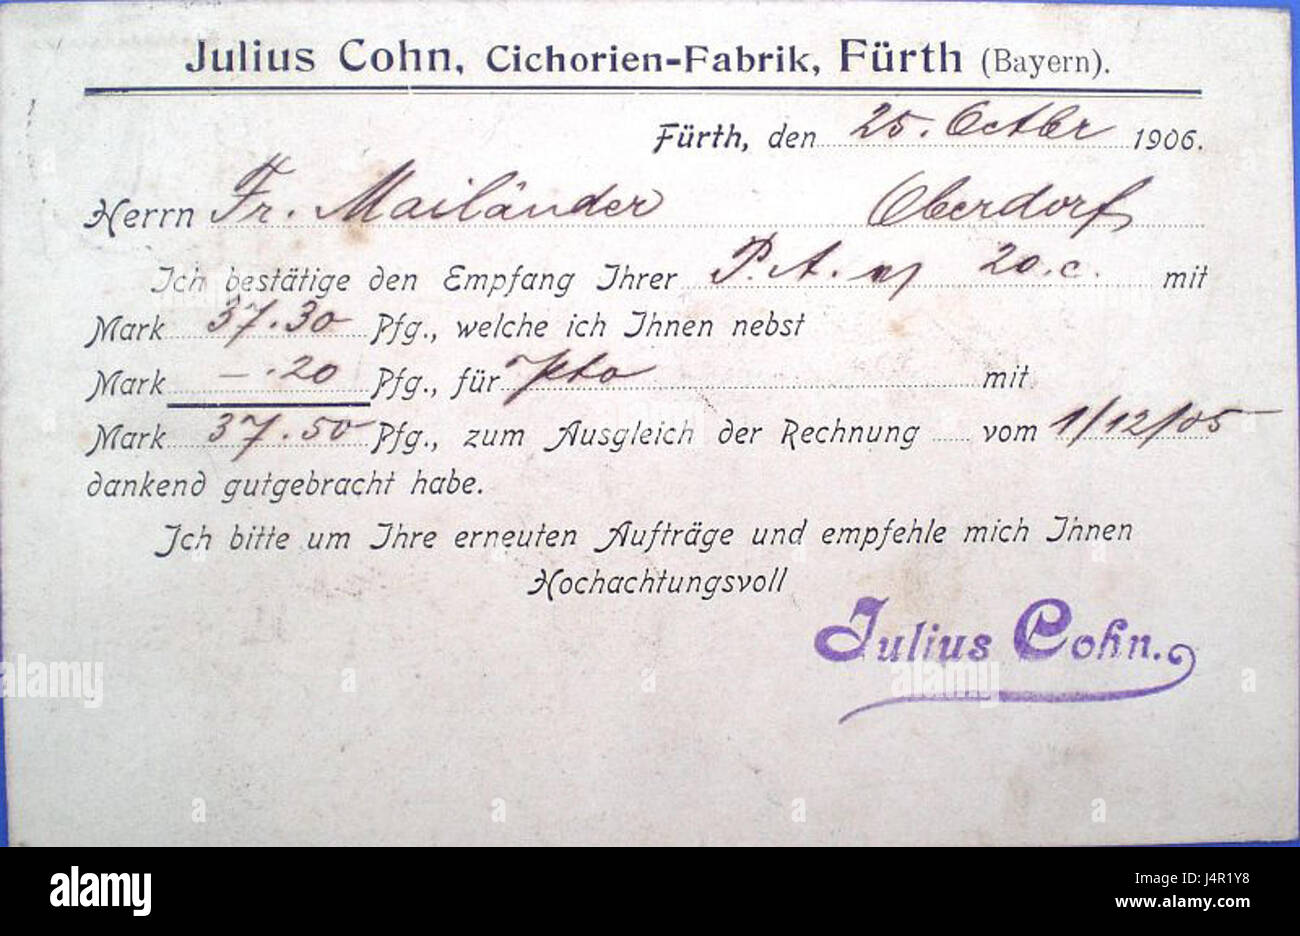 Julius Cohn, Cichorien-Fabrik, Fürth (Bayern).
Fürth, den 25. Octbr 1906.
Herrn Fr. Mailänder Oberdorf
Ich bestätige den Empfang Ihrer P. A. 20. c. mit
Mark 37.30 Pfg., welche ich Ihnen nebst
Mark —.20 Pfg., für mit
Mark 37.50 Pfg., zum Ausgleich der Rechnung vom 1/12/05
dankend gutgebracht habe.
Ich bitte um Ihre erneuten Aufträge und empfehle mich Ihnen
Hochachtungsvoll
Julius Cohn.
alamy
a
a
a
a
a
a
alamy
Image ID: J4R1Y8
www.alamy.com